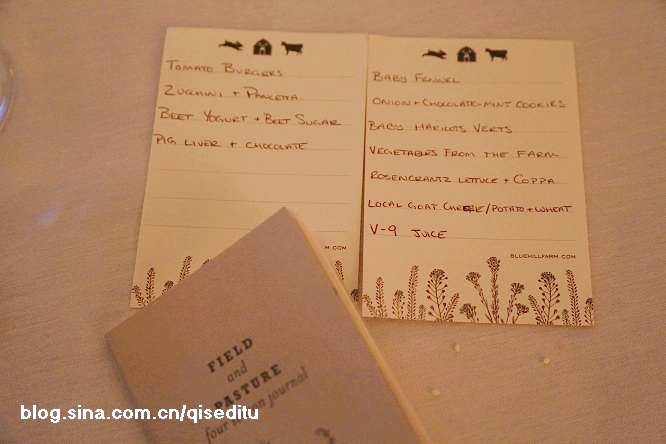 TOMATO BURGERS
ZUCCHINI + PANCETTA
BEET YOGURT + BEET SUGAR
PIG LIVER + CHOCOLATE
M.COM
BABY FENNEL
ONION + CHOCOLATE-MINT COOKIES
BABY HARICOTS VERTS
VEGETABLES FROM THE FARM
ROSENCRANTZ LETTUCE + COPPA
LOCAL GOAT CHEESE/POTATO + WHEAT
V-9 JUICE
BLUEHILLFARM.COM
FIELD
and
PASTURE
four season journal
blog.sina.com.cn/qiseditu